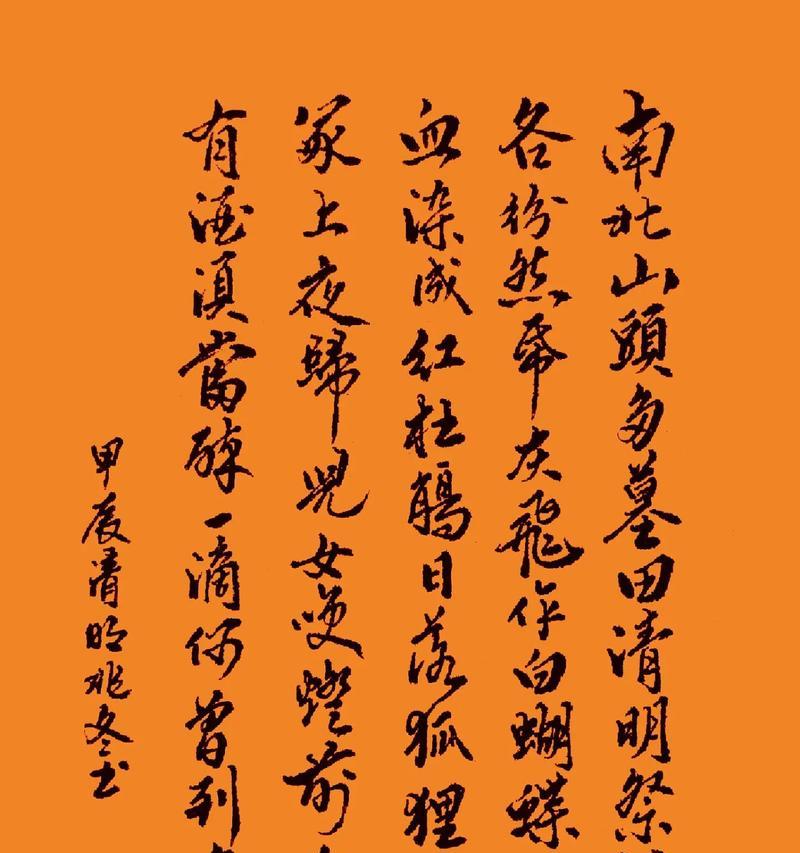 南北山頭多墓田清明祭
各紛然帋灰飛作白蝴蝶
血染成紅杜鵑日落狐狸
冢上夜歸兒女咲燈前
有酒須當醉一滴何曾到
甲辰清明兆冬书